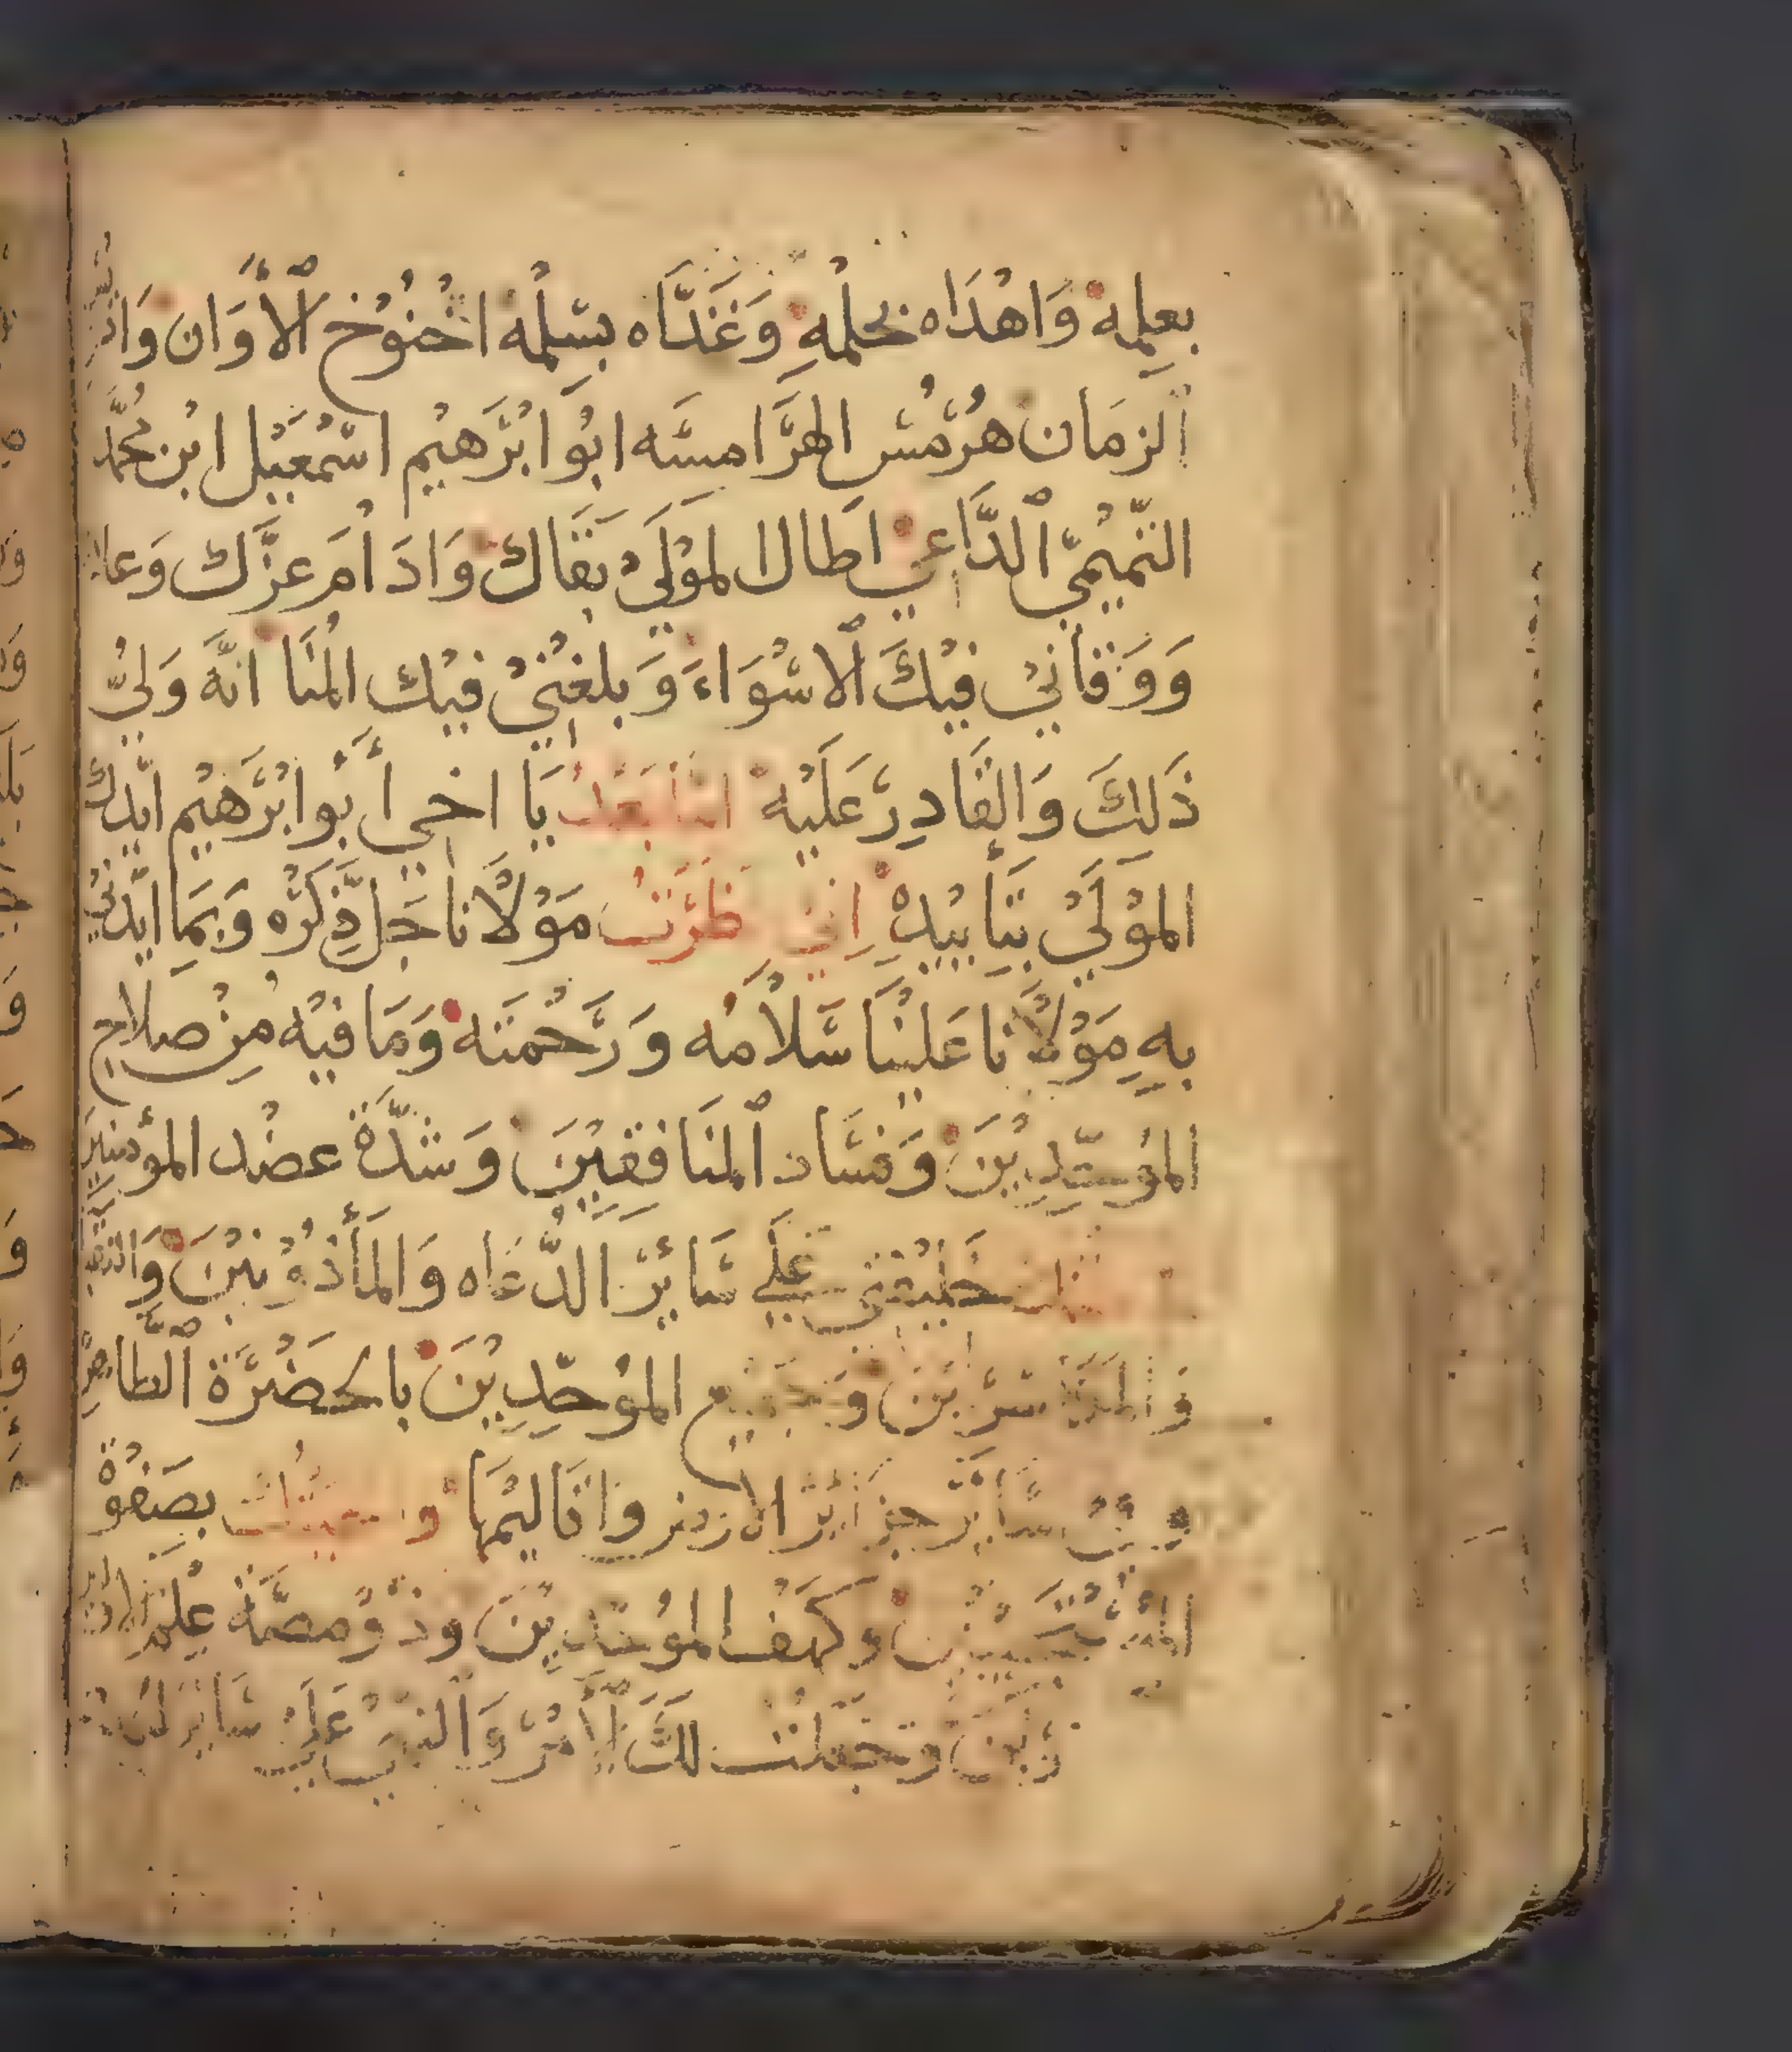 بعلمِه وَاهْدَاه بحلْمهِ وَغَذَّاه بسّلْمه اخْنُوْخ ٱلأَوَان وَادريسْ
ٱلزمَان هرْمسْ الهرَامسَه ابُوْ ابْرَهيْم اسْمعَيْل ابْن محمَّد
التّميْميّ ٱلدَّاعيْ اطَال المَوْلَيْ بَقَاك وَادَامَ عزَّك وَعلاك
وَوَقاَنيْ فيْكَ ٱلاسْوَاءَ وَبلغنيْ فيْك المُنَا انَّه وَليُّ
ذَلِكَ وَالقَادِر عَلَيْه امّا بَعْدُ يَا اخي أَبُو ابْرَهيْم ايّدك
المَوْلَيْ بتَأييْدهْ اني نظرْتُ مَوْلَانَا جَل ذِكرْه وَبمَا ايّدنيْ
بهِ مَوْلَانا عَليْنَا سَّلاَمُه وَرَحْمَتَه وَمَا فيْه مِنْ صلاح
الموُحّدِيْنَ وَفسَاد ٱلمنَافقيْنَ وَشدّة عضْد المؤمنيَن
خَليْفتي عَلَي سَائِر الدُّعَاه وَالمأذُوْنيْنَ وَالنقبا
وَالمكَاسرَيْن وَجَميْع الموُحّدِيْنَ باحضْرَة ٱلطاهرة
وفي سَائِر جزَائر الارض وَاقَاليْمهَا وسميْتُك بصَفوَة
المسْتَجيْبيْن وكهْف الموُحّدِيْنَ وذُوْ مصَّة علْم الاوليْن
وَجعلْت لكَ ٱلأَمْر وَٱلنهي عَلَي سَائر